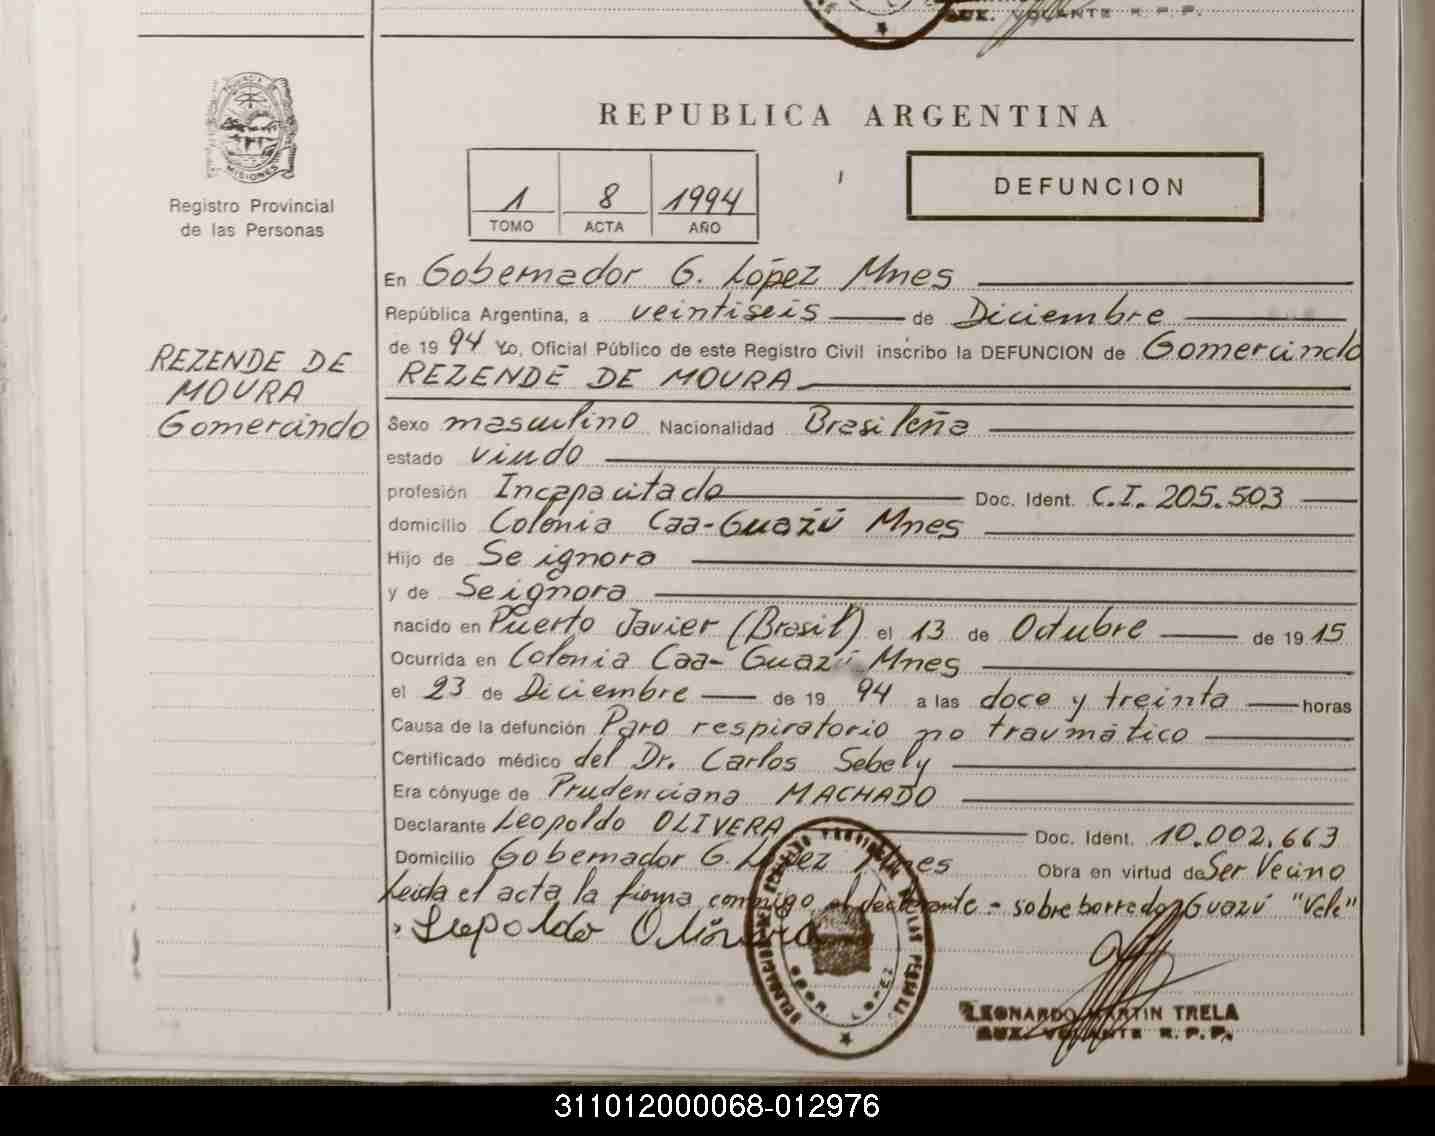 AUX. VOLANTE R.P.P.
PROVINCIA DE
MISIONES
Registro Provincial
de las Personas
REPUBLICA ARGENTINA
1 8 1994
TOMO ACTA AÑO
DEFUNCION
En Gobernador G. López Mnes
República Argentina, a veintiseis de Diciembre
de 1994 Yo, Oficial Público de este Registro Civil inscribo la DEFUNCION de Gomercindo
REZENDE DE MOURA
REZENDE DE
MOURA
Gomercindo
Sexo masculino Nacionalidad Brasileña
estado viudo
profesión Incapacitado Doc. Ident. C.I. 205.503
domicilio Colonia Caa-Guazú Mnes
Hijo de Se ignora
y de Se ignora
nacido en Puerto Javier (Brasil) el 13 de Octubre de 1915
Ocurrida en Colonia Caa-Guazú Mnes
el 23 de Diciembre de 1994 a las doce y treinta horas
Causa de la defunción Paro respiratorio no traumático
Certificado médico del Dr. Carlos Sebely
Era cónyuge de Prudenciana MACHADO
Declarante Leopoldo OLIVERA Doc. Ident. 10.002.663
Domicilio Gobernador G. López Mnes Obra en virtud de Ser Vecino
Leida el acta la firma conmigo el declarante - sobreborrado: Guazú "Vale"
Leopoldo Olivera
GDOR. LOPEZ
LEONARDO MARTIN TRELA
AUX. VOLANTE R.P.P.
311012000068-012976